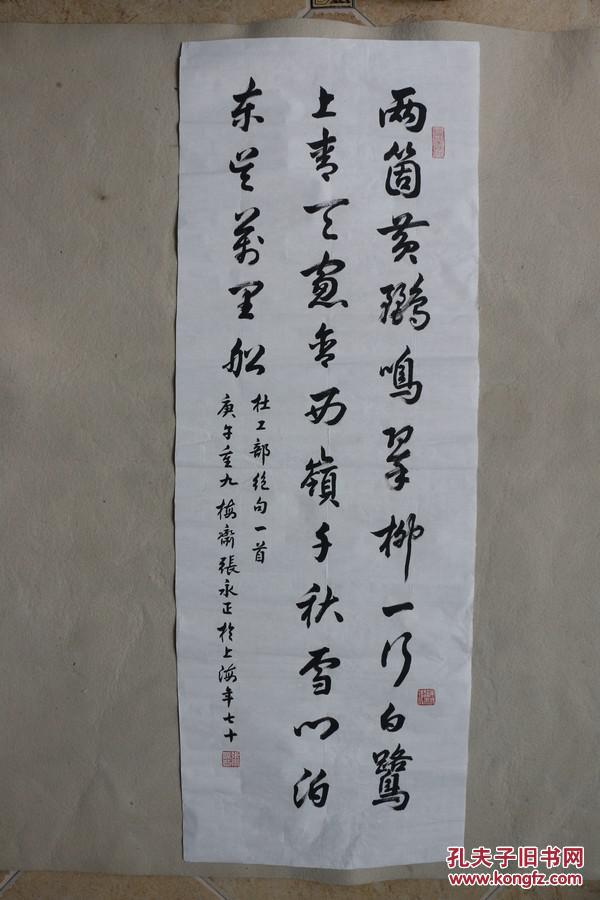 两箇黄鸝鳴翠柳一行白鷺
上青天窗含西嶺千秋雪門泊
东吴萬里船
杜工部絶句一首
庚午重九梅齋張永正於上海年七十
孔夫子旧书网
www.kongfz.com